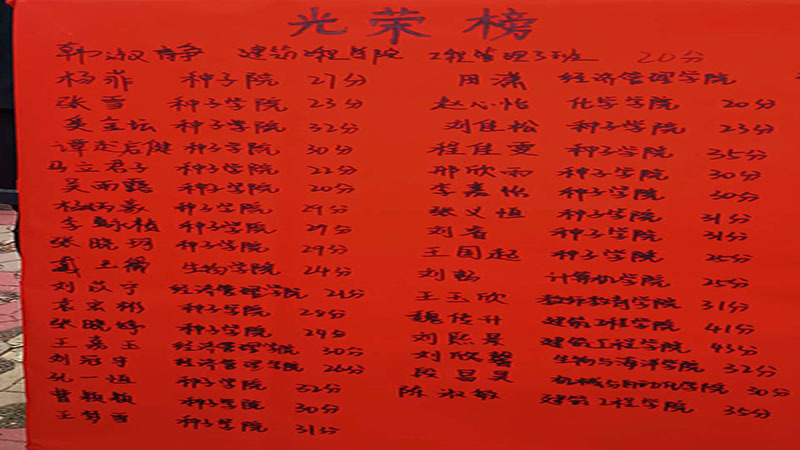 光荣榜
韩淑静 建筑工程学院 工程管理3班 20分
杨菲 种子学院 27分 田潇 经济管理学院
张雪 种子学院 23分 赵心怡 化学学院 20分
吴金坛 种子学院 32分 刘佳松 种子学院 23分
谭志宏健 种子学院 30分 程佳雯 种子学院 35分
马立君子 种子学院 22分 邢欣雨 种子学院 30分
吴雨露 种子学院 20分 李嘉怡 种子学院 30分
杨炳豪 种子学院 29分 张义恒 种子学院 31分
李 种子学院 27分 刘睿 种子学院 31分
张晓玥 种子学院 29分 王国起 种子学院 25分
王 生物学院 24分 刘畅 计算机学院 25分
刘苡宁 经济管理学院 21分 王玉欣 教师教育学院 31分
袁宏彬 种子学院 28分 魏传升 建筑工程学院 41分
张晓婷 种子学院 29分 刘熙景 建筑工程学院 43分
王嘉玉 经济管理学院 30分 刘欣馨 生物与海洋学院 32分
刘冠宇 经济管理学院 26分 段昌昊 机械与自动化学院 30分
孔一恒 种子学院 32分 陈淑敏 建筑工程学院 35分
曹颖颖 种子学院 30分
王梦雪 种子学院 31分